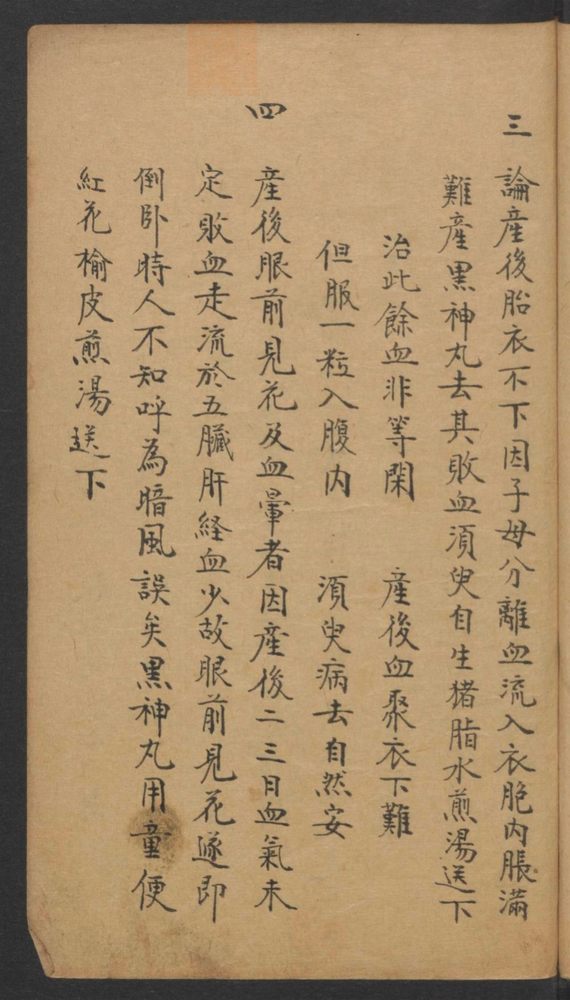 三 論産後胎衣不下因子母分離血流入衣胞内脹滿
難産黒神丸去其敗血須臾自生猪脂水煎湯送下
治此餘血非等閑 産後血聚衣下難
但服一粒入腹内 須臾病去自然安
四 産後眼前見花及血暈者因産後二三日血氣未
定敗血走流於五臟肝経血少故眼前見花遂即
倒卧時人不知呼為暗風誤矣黒神丸用童便
紅花榆皮煎湯送下